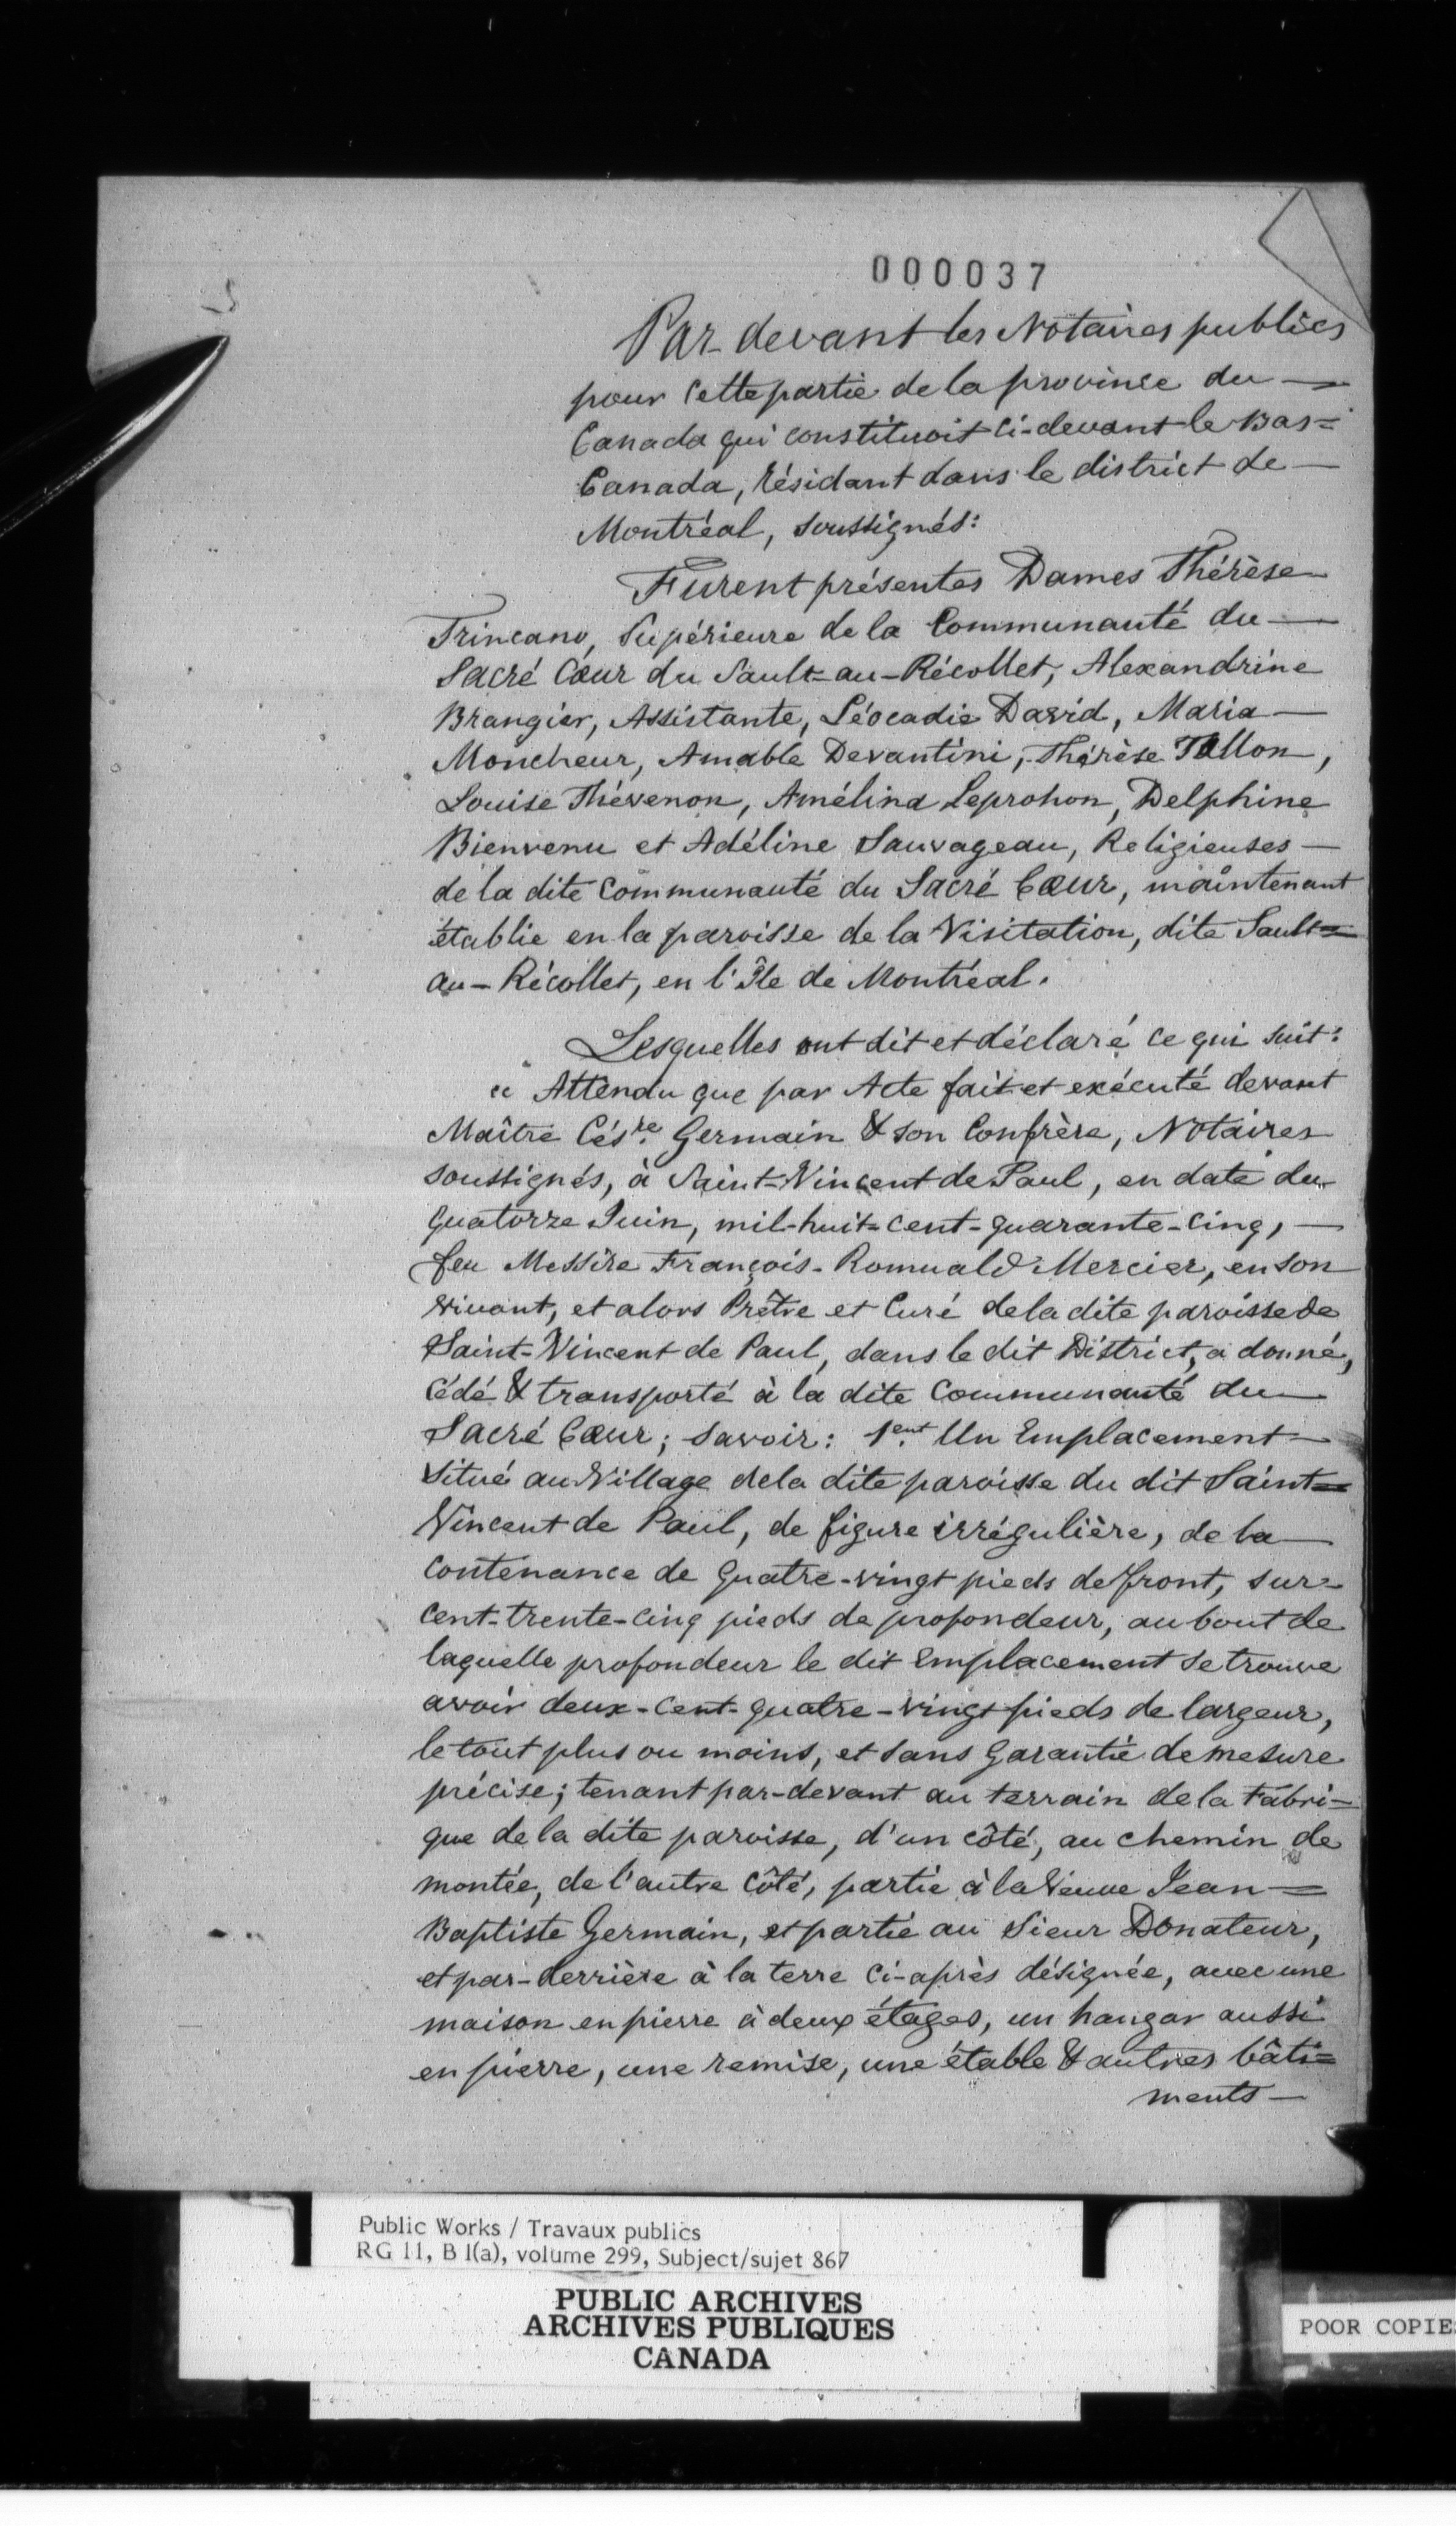 000037
Par-devant les Notaires publics
pour cette partie de la province du —
Canada qui constituoit ci-devant le Bas=
Canada, résidant dans le district de —
Montréal, soussignés:
Furent présentes Dames Thérèse
Trincano, Supérieure de la Communauté du —
Sacré Cœur du Sault-au-Récollet, Alexandrine
Brangier, Assistante, Léocadie David, Maria —
Moncheur, Amable Devantini, Thérèse Tallon,
Louise Thévenon, Amélina Leprohon, Delphine
Bienvenu et Adéline Sauvageau, Religieuses —
de la dite Communauté du Sacré Cœur, maintenant
établie en la paroisse de la Visitation, dite Sault=
au-Récollet, en l'Île de Montréal.
Lesquelles ont dit et déclaré ce qui suit:
« Attendu que par Acte fait et exécuté devant
Maître Cés.re Germain & son Confrère, Notaires
soussignés, à Saint-Vincent de Paul, en date du
quatorze Juin, mil-huit-cent-quarante-cinq, —
feu Messire François-Romuald Mercier, en son
vivant, et alors Prêtre et Curé de la dite paroisse de
Saint-Vincent de Paul, dans le dit District, a donné,
cédé & transporté à la dite Communauté du —
Sacré Cœur; savoir: 1.ent Un Emplacement —
situé au Village de la dite paroisse du dit Saint=
Vincent de Paul, de figure irrégulière, de la —
contenance de quatre-vingt pieds de front, sur
cent-trente-cinq pieds de profondeur, au bout de
laquelle profondeur le dit Emplacement se trouve
avoir deux-cent-quatre-vingt pieds de largeur,
le tout plus ou moins, et sans garantie de mesure
précise; tenant par-devant au terrain de la Fabri-
que de la dite paroisse, d'un côté, au chemin de
montée, de l'autre côté, partie à la Veuve Jean =
Baptiste Germain, et partie au Sieur Donateur,
et par-derrière à la terre ci-après désignée, avec une
maison en pierre à deux étages, un hangar aussi
en pierre, une remise, une étable & autres bâti=
ments —
Public Works / Travaux publics
RG 11, B 1(a), volume 299, Subject/sujet 867
PUBLIC ARCHIVES
ARCHIVES PUBLIQUES
CANADA
POOR COPIES